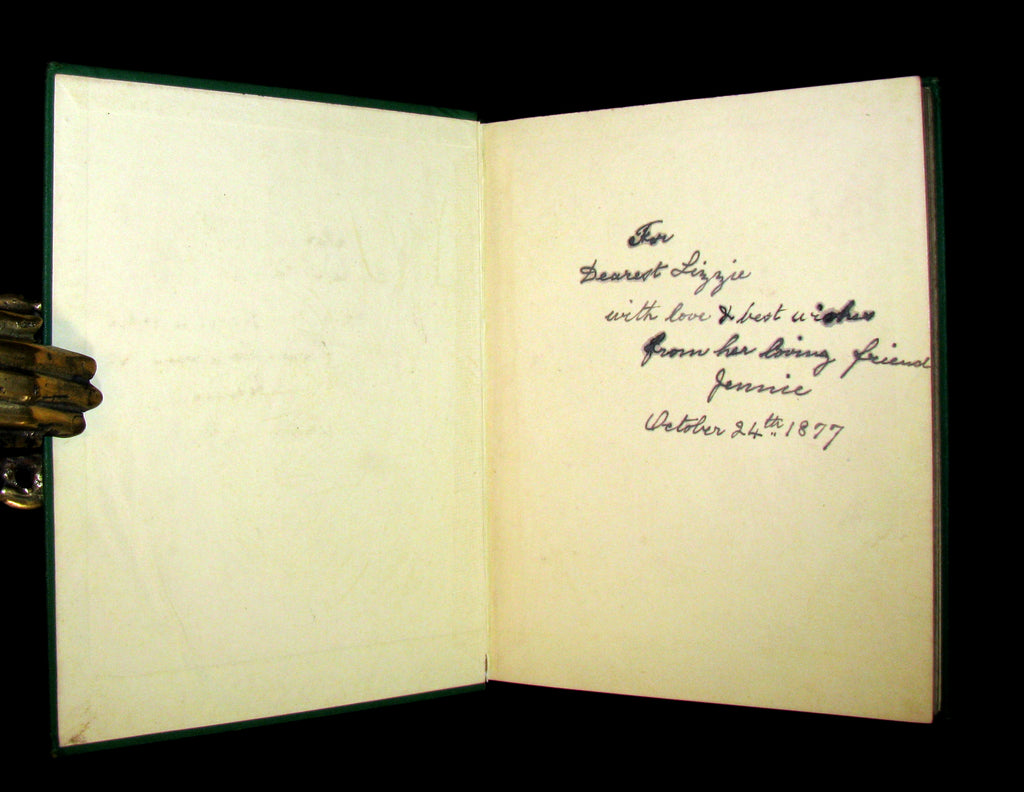 For
Dearest Lizzie
with love & best wishes
from her loving friend
Jennie
October 24th 1877